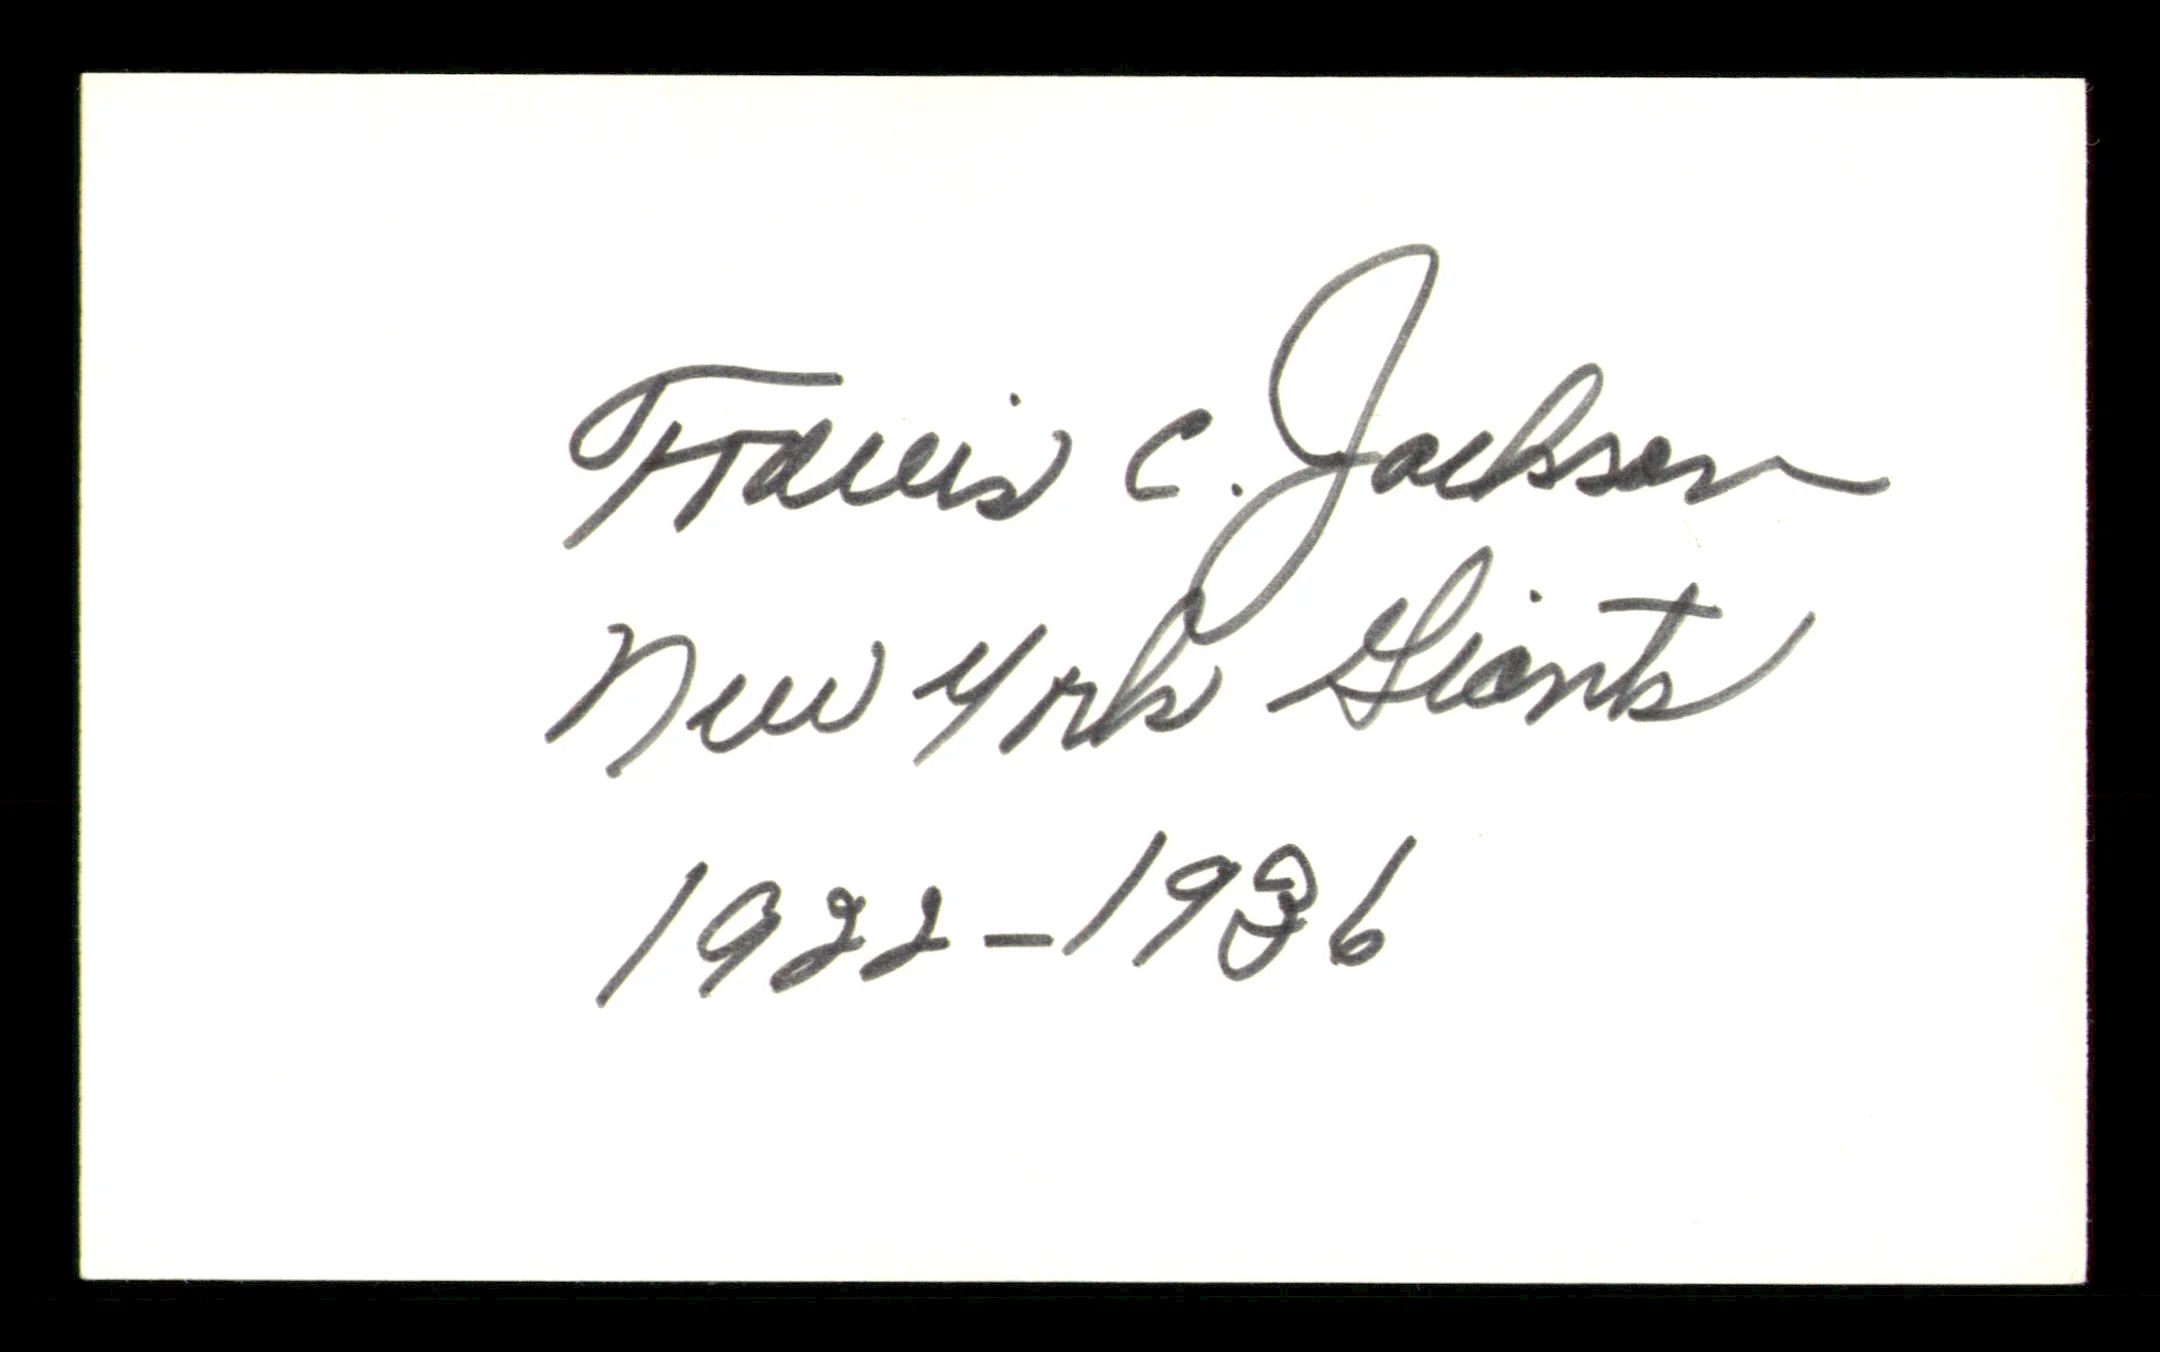 Travis C. Jackson
New York Giants
1922-1936